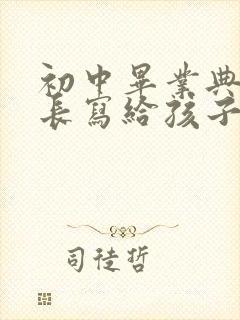 初中畢業典
長寫給孩子
司徒哲